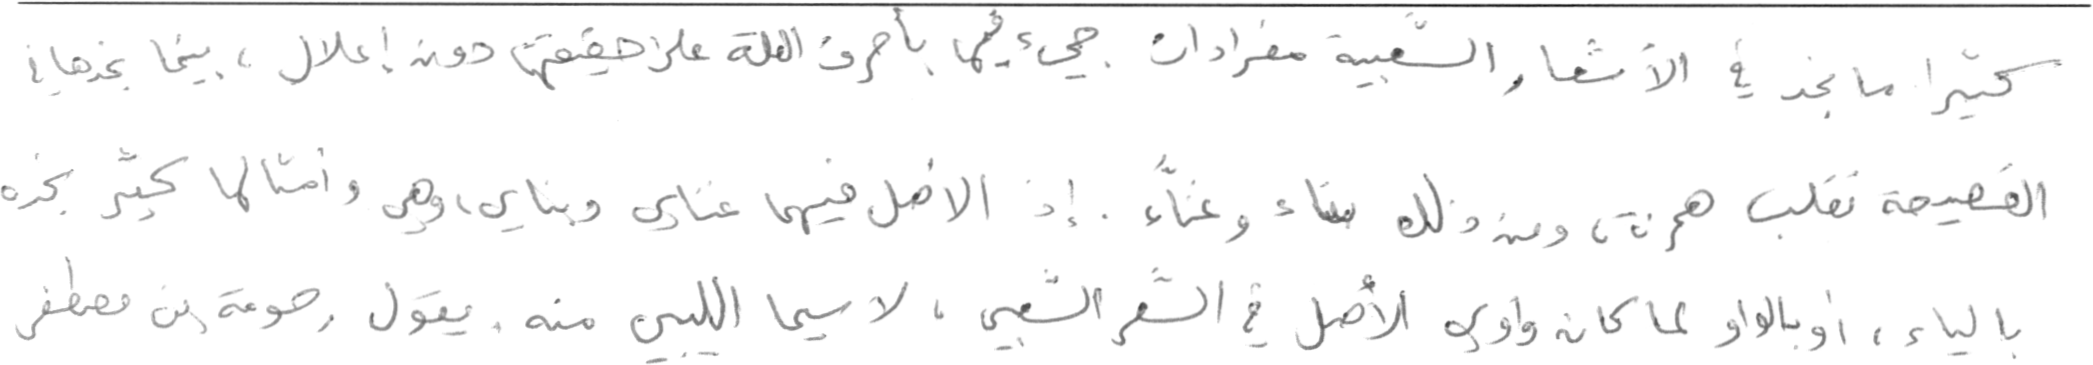 كثيرا ما نجد في الأشعار الشعبية مفرادات جيء فيها بأحرف العلة على حقيقتها دون إعلال ، بينما نجدها في
الفصيحة تقلب همزة ، ومن ذلك بناء وغناء . إذ الاصل فيهما غناي وبناي ، وهي وأمثالها كثير نجده
بالياء ، أو بالواو لما كان واوي الأصل في الشعر الشعبي ، لا سيما الليبي منه . يقول حومة بن مصطفى